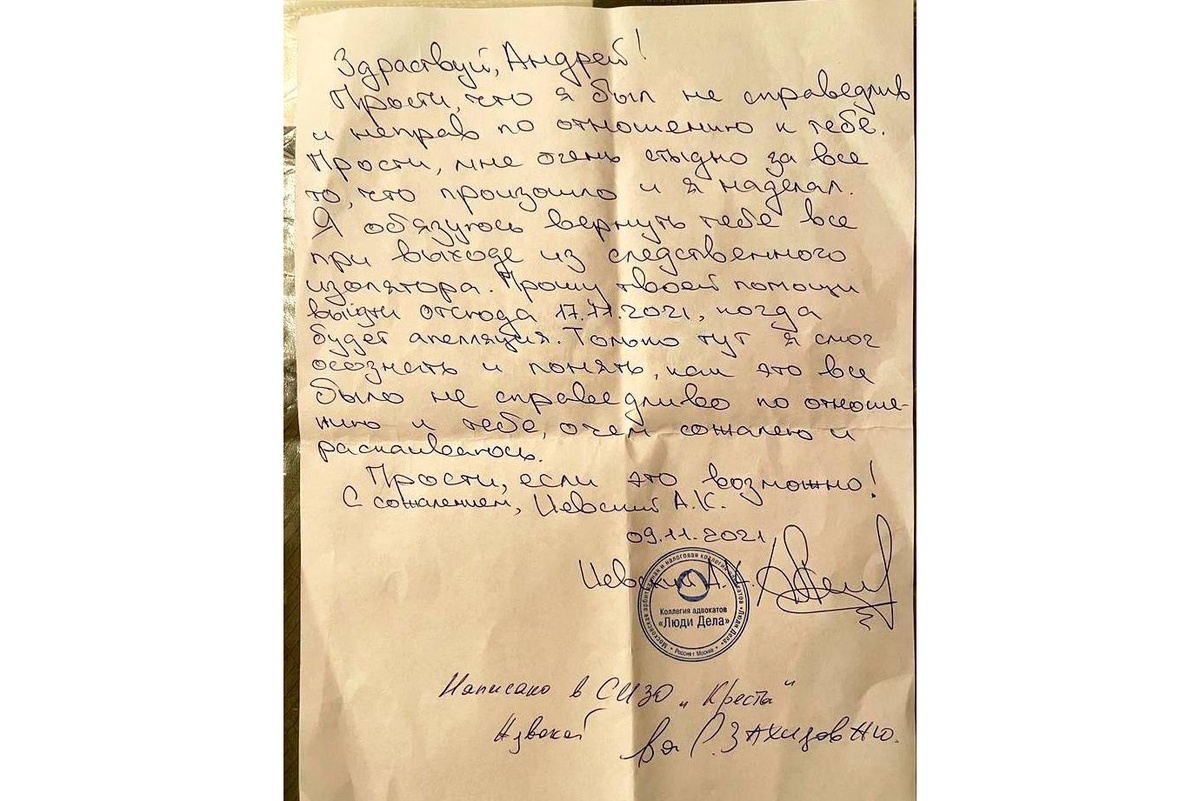 Здраствуй, Андрей!
Прости, что я был не справедлив
и неправ по отношению к тебе.
Прости, мне очень стыдно за все
то, что произошло и я наделал.
Я обязуюсь вернуть тебе все
при выходе из следственного
изолятора. Прошу твоей помощи
выйти отсюда 17.11.2021, когда
будет апелляция. Только тут я смог
осознать и понять, как это все
было не справедливо по отноше-
нию к тебе, о чем сожалею и
раскаиваюсь.
Прости, если это возможно!
С сожалением, Цевский А.К.
09.11.2021
Цевский А.К.
Московская арбитражная и налоговая коллегия адвокатов «Люди Дела»
Коллегия адвокатов
«Люди Дела»
Россия г Москва
Написано в СИЗО „Кресты"
Адвокат Захидов А.Ю.